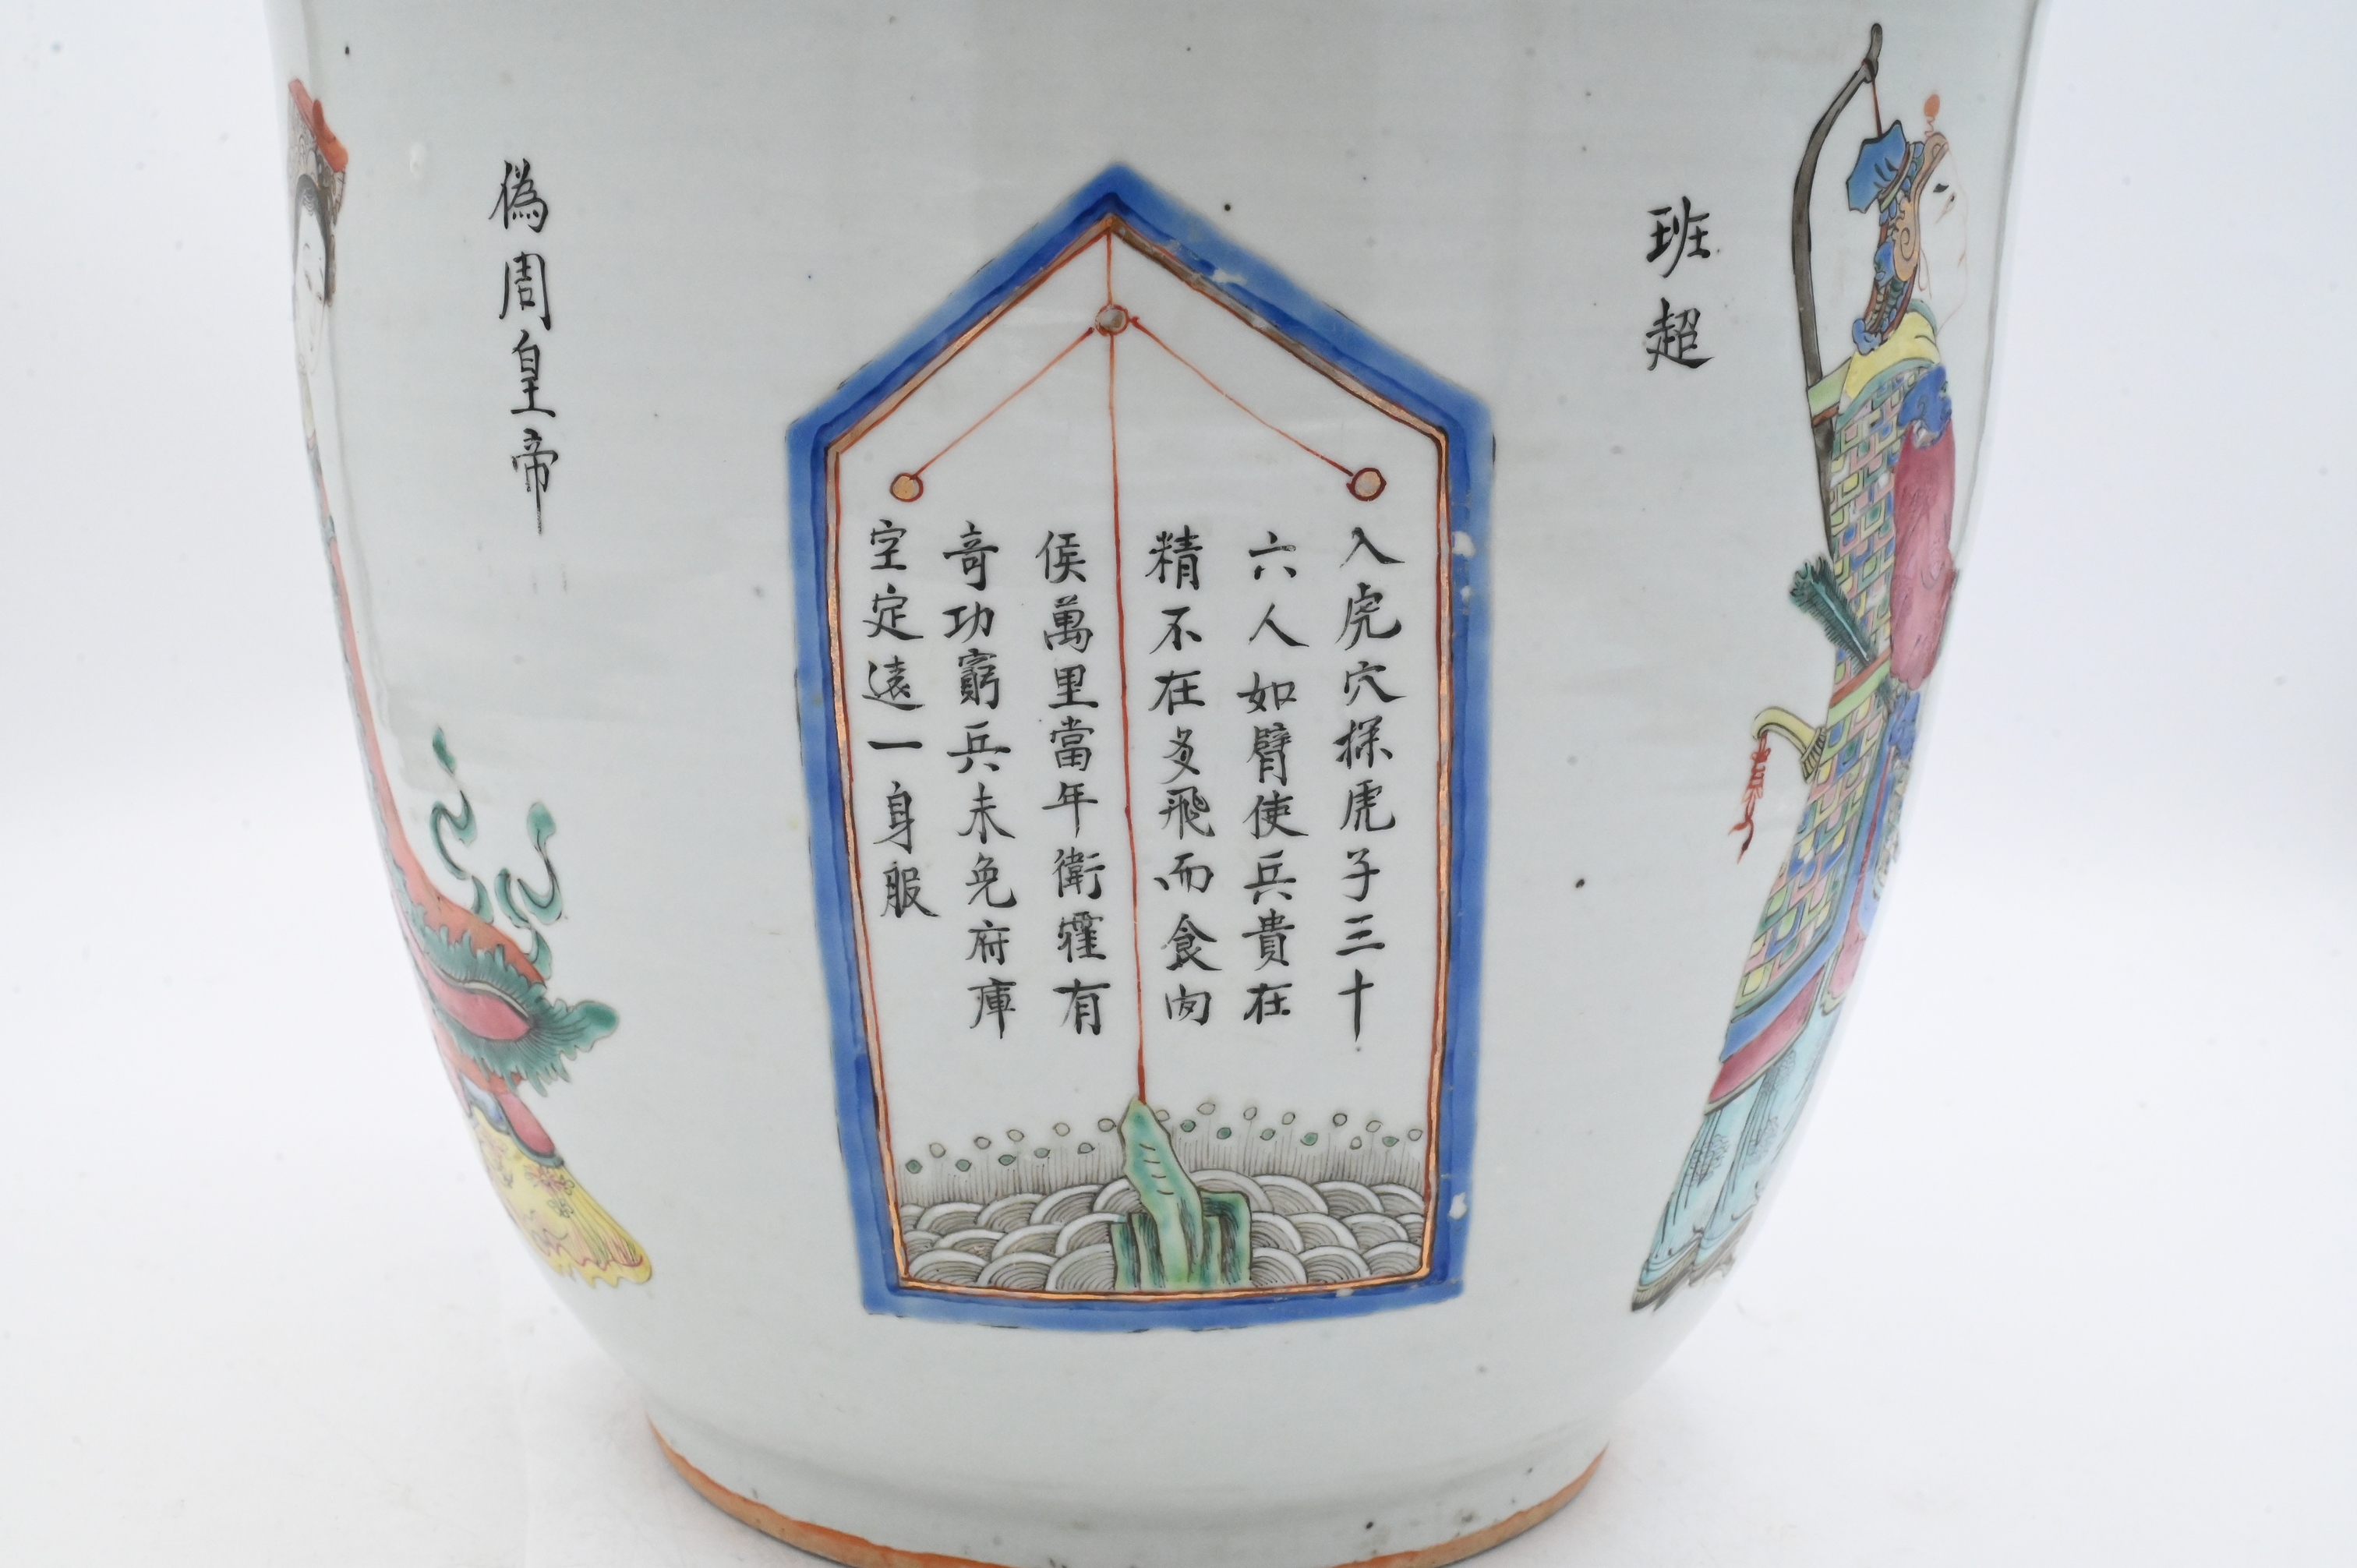 班超
入虎穴探虎子三十
六人如臂使兵貴在
精不在多飛而食肉
侯萬里當年衛霍有
奇功窮兵未免府庫
空定遠一身服
偽周皇帝